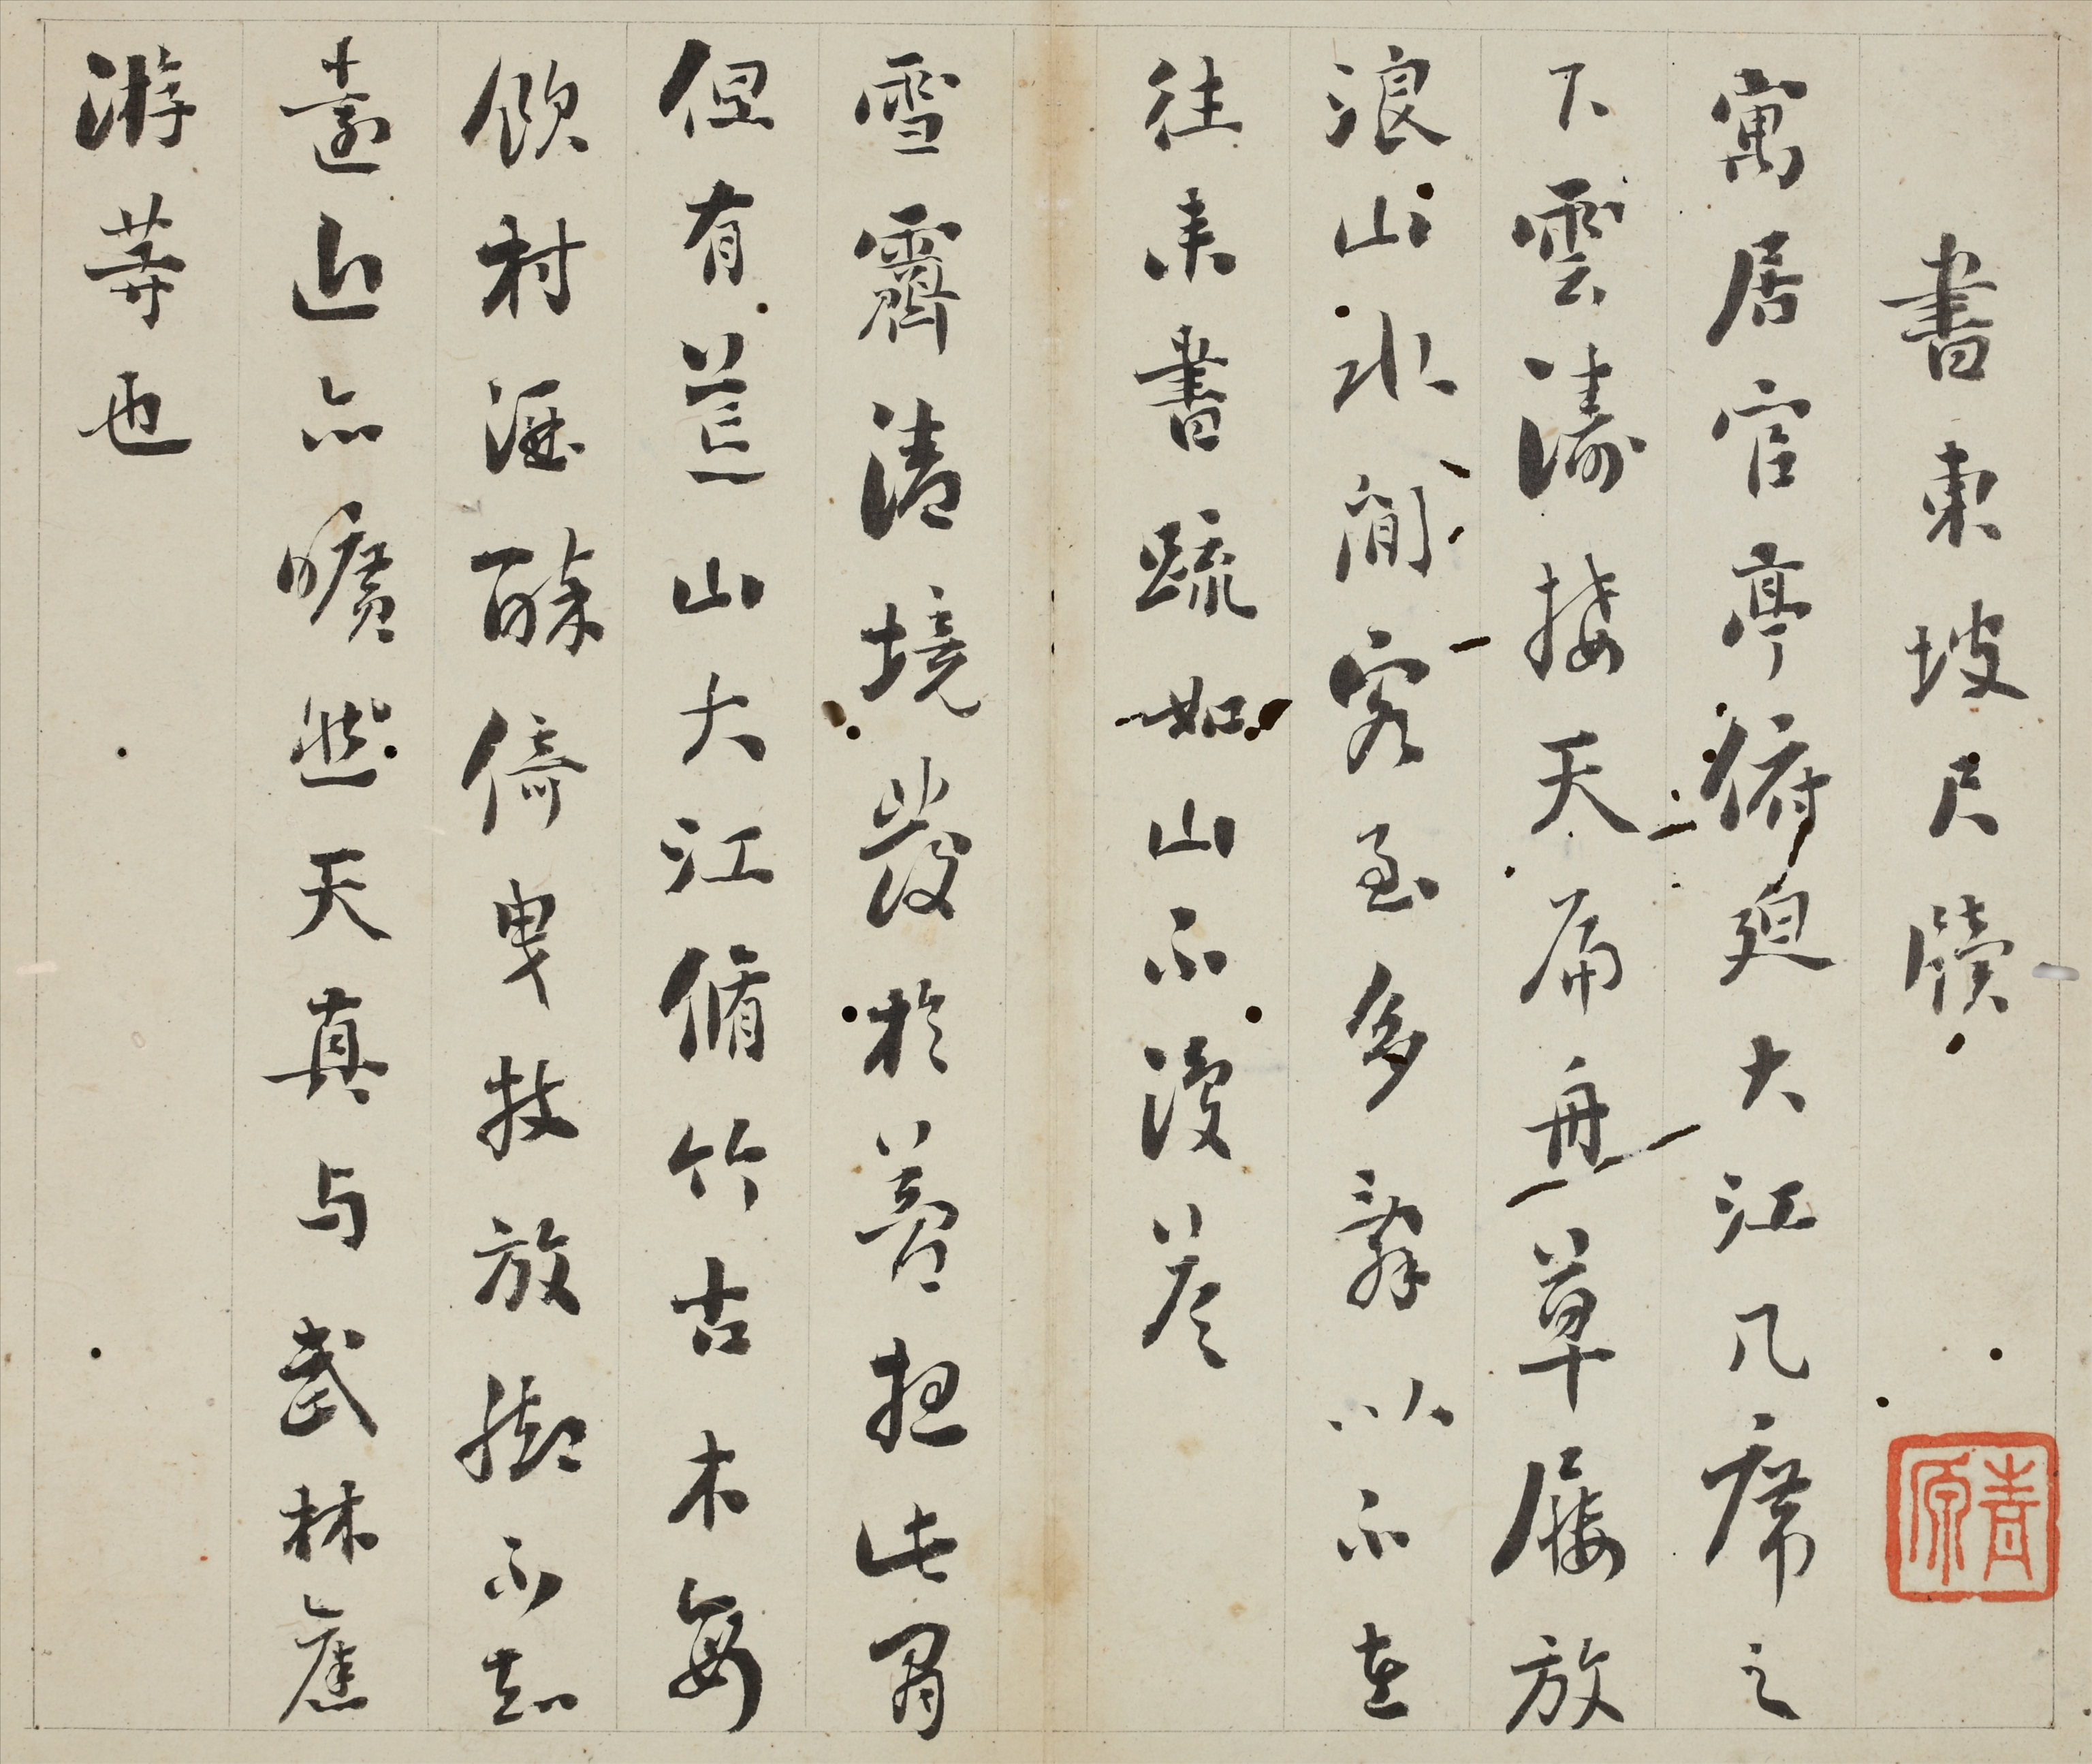 書東坡尺牘
寓居官亭俯迫大江几席之
下雲濤接天扁舟草屨放
浪山水間客至多辭以不在
往来書疏如山不復答
雪霽清境發於夢想此間
但有荒山大江脩竹古木每
飲村酒醉後曳杖放腳不知
遠近亦曠然天真与武林舊
游等也